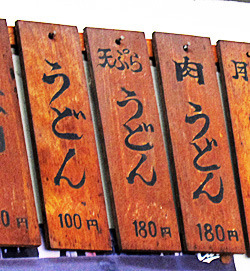 うどん
100円
天ぷら
うどん
180円
肉
うどん
180円